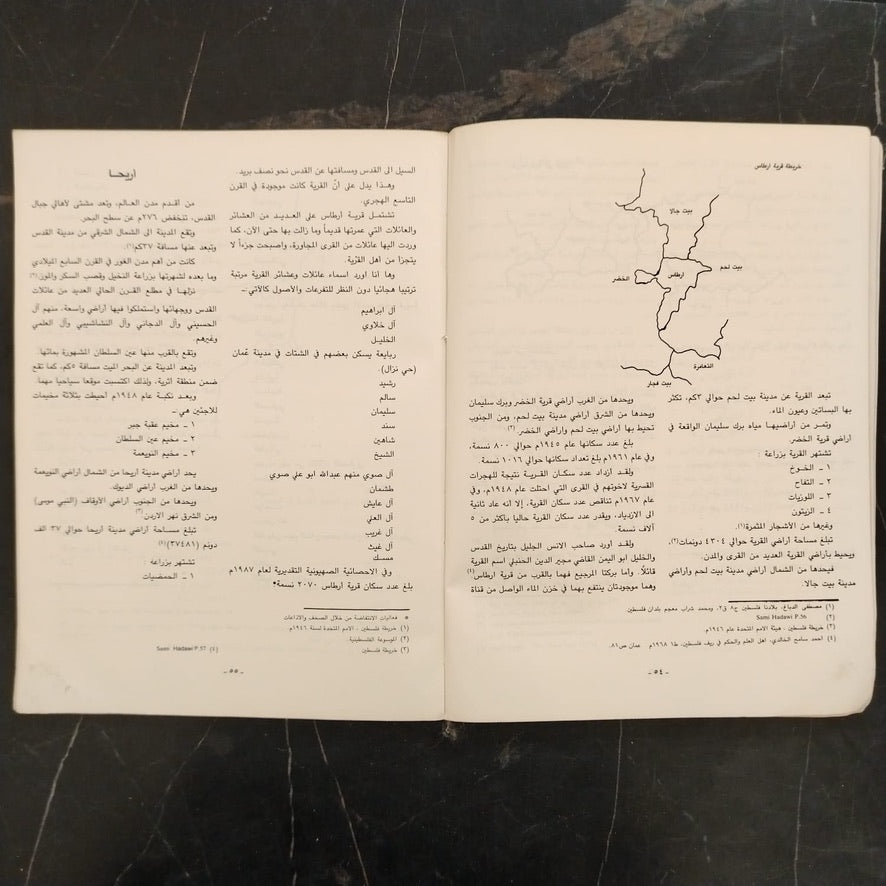 خريطة قرية ارطاس
بيت جالا
بيت لحم
ارطاس
الخضر
التعامرة
بيت فجار
تبعد القرية عن مدينة بيت لحم حوالي ٣كم، تكثر
بها البساتين وعيون الماء.
وتمر من أراضيها مياه برك سليمان الواقعة في
أراضي قرية الخضر.
تشتهر القرية بزراعة :
١ ـ الخوخ
٢ ـ التفاح
٣ ـ اللوزيات
٤ ـ الزيتون
وغيرها من الأشجار المثمرة(١).
تبلغ مساحة أراضي القرية حوالي ٤٣٠٤ دونمات(٢)،
ويحيط بأراضي القرية العديد من القرى والمدن.
فيحدها من الشمال أراضي مدينة بيت لحم وأراضي
مدينة بيت جالا.
ويحدها من الغرب أراضي قرية الخضر وبرك سليمان
ويحدها من الشرق أراضي مدينة بيت لحم، ومن الجنوب
تحيط بها أراضي بيت لحم واراضي الخضر.(٣)
بلغ عدد سكانها عام ١٩٤٥م حوالي ٨٠٠ نسمة،
وفي عام ١٩٦١م بلغ تعداد سكانها حوالي ١٠١٦ نسمة.
ولقد ازداد عدد سكان القرية نتيجة للهجرات
القسرية لاخوتهم في القرى التي احتلت عام ١٩٤٨م، وفي
عام ١٩٦٧م تناقص عدد سكان القرية، إلا أنه عاد ثانية
الى الازدياد، ويقدر عدد سكان القرية حاليا باكثر من ٥
آلاف نسمة.
ولقد أورد صاحب الانس الجليل بتاريخ القدس
والخليل ابو اليمن القاضي مجير الدين الحنبلي اسم القرية
قائلاً. وأما بركتا المرجيع فهما بالقرب من قرية ارطاس(٤)
وهما موجودتان ينتفع بهما في خزن الماء الواصل من قناة
(١) مصطفى الدباغ، بلادنا فلسطين ج٨ ق٢، ومحمد شراب معجم بلدان فلسطين.
(٢) Sami Hadawi P.56
(٣) خريطة فلسطين ، هيئة الأمم المتحدة عام ١٩٤٦م.
(٤) احمد سامح الخالدي، اهل العلم والحكم في ريف فلسطين، ط١ ١٩٦٨م عمان ص٨١.
ـ ٥٤ ـ
السيل الى القدس ومسافتها عن القدس نحو نصف بريد.
وهـذا يدل على أنّ القرية كانت موجودة في القرن
التاسع الهجري.
تشتمـل قريـة أرطاس على العديـد من العشائر
والعائلات التي عمرتها قديماً وما زالت بها حتى الآن، كما
وردت اليها عائلات من القرى المجاورة، واصبحت جزءاً لا
يتجزأ من اهل القرية.
وها أنا اورد اسماء عائلات وعشائر القرية مرتبة
ترتيبا هجائيا دون النظر للتفرعات والأصول كالآتي:ـ
آل ابراهيم
آل خلاوي
الخليـل
ربايعة يسكن بعضهم في الشتات في مدينة عُمان
(حي نزال).
رشيد
سالم
سليمان
سند
شاهين
الشيخ
آل صوي منهم عبدالله ابو علي صوي
طشمان
آل عايش
آل العلي
آل غريب
آل غيث
مسـك
وفي الاحصائية الصهيونية التقديرية لعام ١٩٨٧م
بلغ عدد سكان قرية أرطاس ٢٠٧٠ نسمة*
اريحـا
من أقـدم مدن العـالم، وتعد مشتى لأهالي جبال
القدس، تنخفض ٢٧٦م عن سطح البحر.
وتقع المدينة الى الشمال الشرقي من مدينة القدس
وتبعد عنها مسافة ٣٧كم(١).
كانت من أهم مدن الغور في القرن السابع الميلادي
وما بعده لشهرتها بزراعة النخيل وقصب السكر والموز.(٢)
نزلها في مطلع القرن الحالي العديد من عائلات
القدس ووجهائها واستملكوا فيها أراضي واسعة، منهم آل
الحسيني وآل الدجاني وآل النشاشيبي وآل العلمي
وغيرهم.
وتقع بالقرب منها عين السلطان المشهورة بمائها.
وتبعد المدينة عن البحر الميت مسافة ٥كم، كما تقع
ضمن منطقة اثرية، ولذلك اكتسبت موقعا سياحيا مهما.
وبعـد نكبـة عام ١٩٤٨م احيطت بثلاثة مخيمات
للاجئين هي:ـ
١ ـ مخيم عقبة جبر
٢ ـ مخيم عين السلطان
٣ ـ مخيم النويعمة
يحد أراضي مدينة أريحا من الشمال أراضي النويعمة
ويحدها من الغرب أراضي الديوك.
ويحدها من الجنوب أراضي الأوقاف (النبي موسى)
ومن الشرق نهر الاردن.(٣)
تبلغ مسـاحـة أراضي مدينة أريحا حوالي ٣٧ الف
دونم (٣٧٤٨١)(٤)
تشتهر بزراعه :
١ ـ الحمضيات
* فعاليات الانتفاضة من خلال الصحف والاذاعات
(١) خريطة فلسطين ، الأمم المتحدة لسنة ١٩٤٦م.
(٢) الموسوعة الفلسطينية.
(٣) خريطة فلسطين.
(٤) Sami Hadawi P.57
ـ ٥٥ ـ